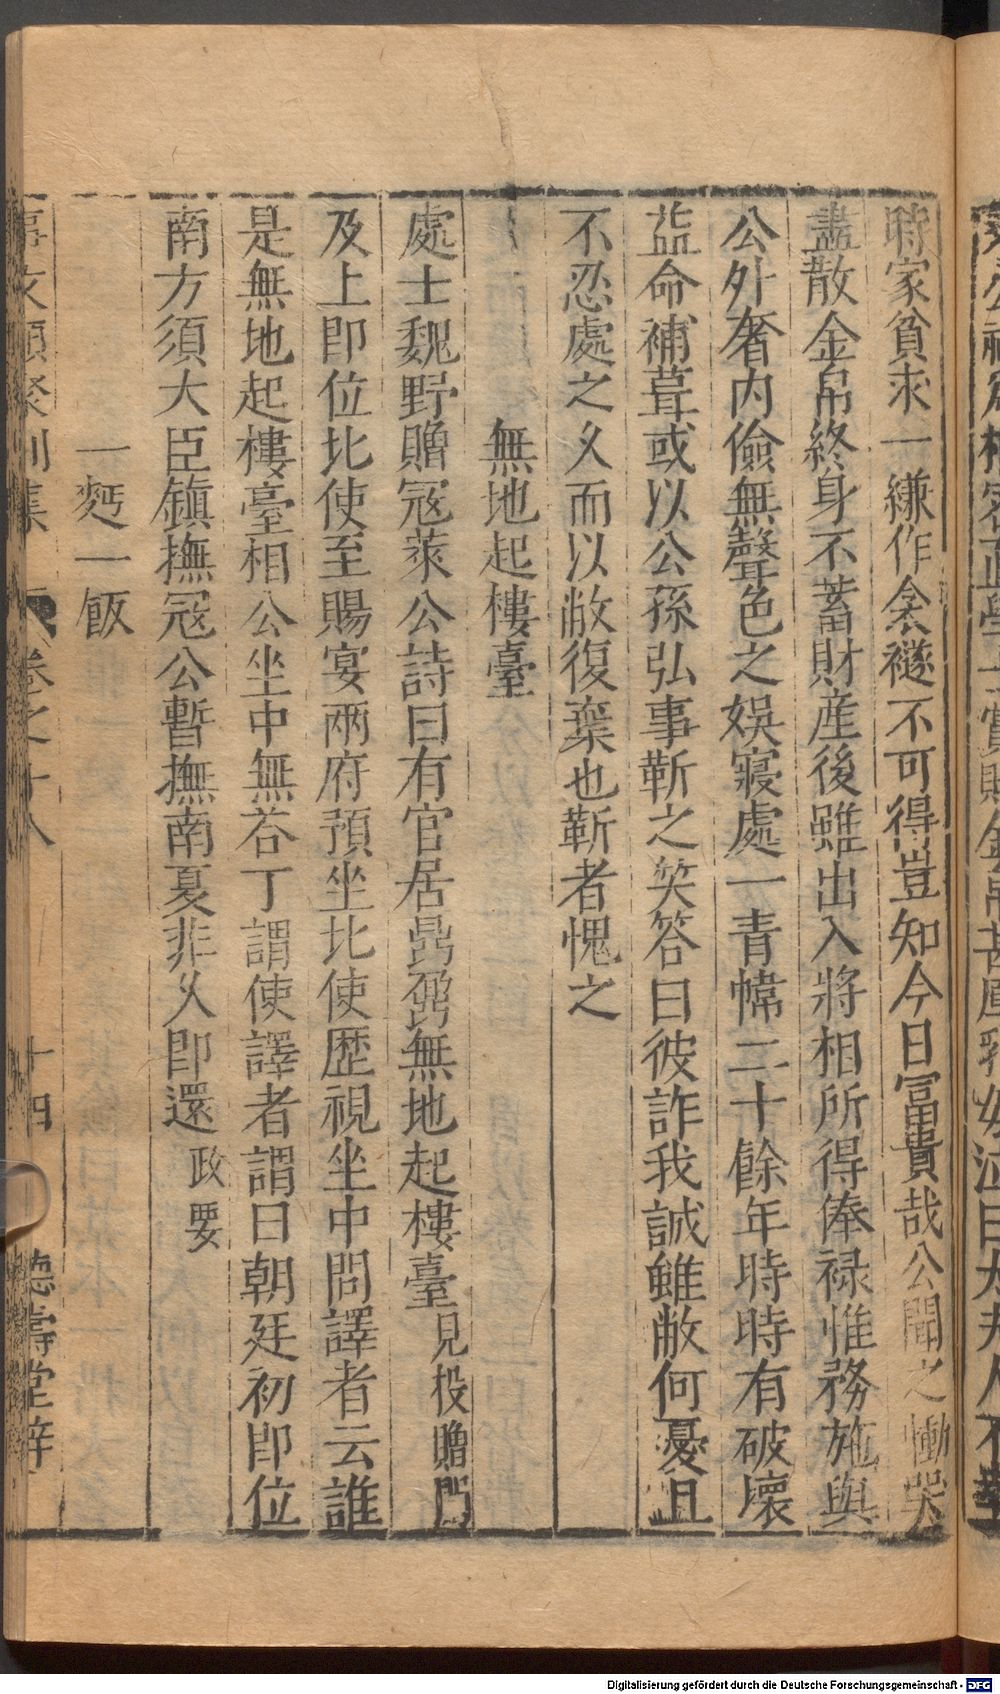 時家貧求一縑作衾襚不可得豈知今日冨貴哉公聞之慟哭
盡散金帛終身不蓄財産後雖出入將相所得俸禄惟務施與
公外奢内儉無聲色之娯寢處一青幃二十餘年時時有破壞
益命補葺或以公孫弘事靳之笑答曰彼詐我誠雖敝何憂且
不忍處之久而以敝復棄也靳者愧之
無地起樓臺
處士魏野贈冦萊公詩曰有官居鼎鼐無地起樓臺見投贈門
及上即位北使至賜宴兩府預坐北使歴視坐中問譯者云誰
是無地起樓臺相公坐中無荅丁謂使譯者謂曰朝廷初即位
南方須大臣鎮撫冦公暫撫南夏非久即還政要
一麫一飯
事文類聚别集 卷之十八 十四 德壽堂梓
Digitalisierung gefördert durch die Deutsche Forschungsgemeinschaft - DFG